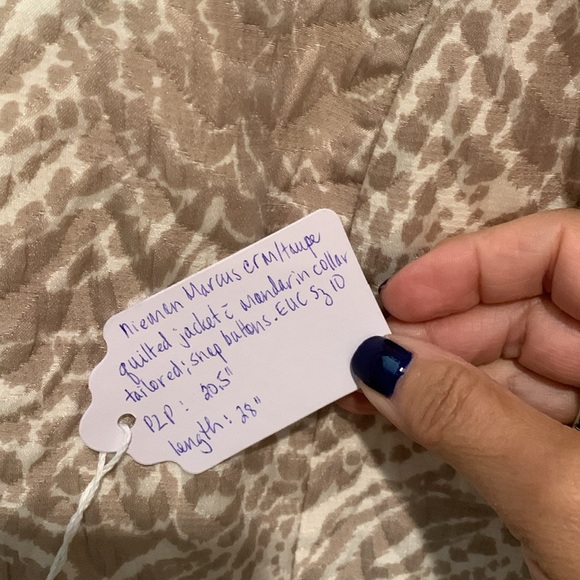 Nieman Marcus crm/taupe
quilted jacket c̄ mandarin collar
tailored; snap buttons. EUC Sz 10
P2P: 20.5"
length: 28"